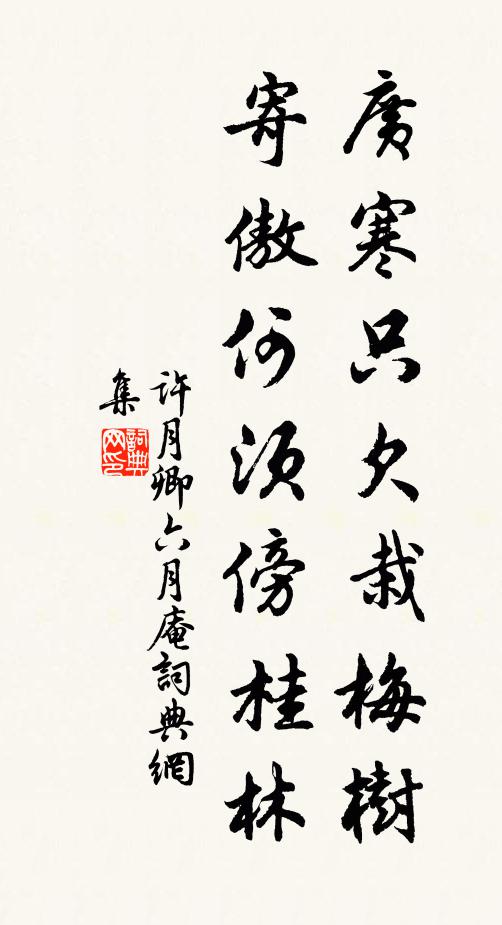 廣寒只欠栽梅樹
寄傲何須傍桂林
許月卿六月庵詞典網
集
詞典
网印